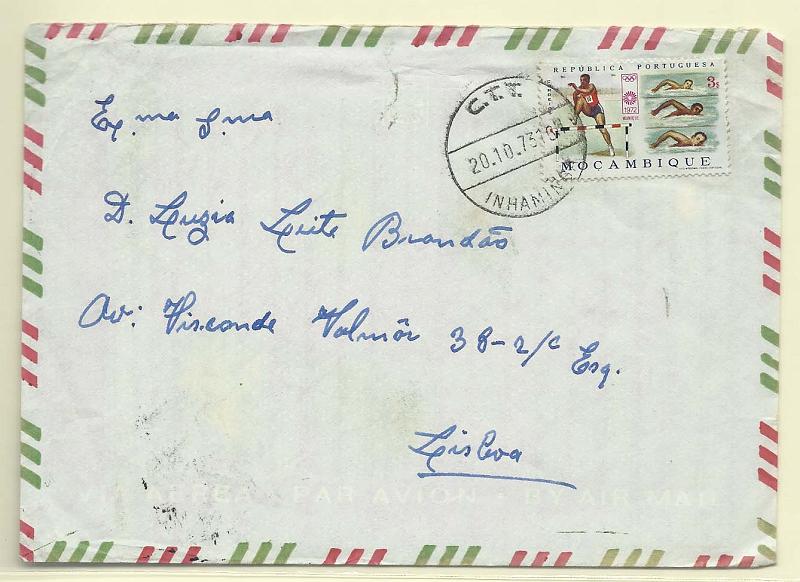 REPÚBLICA PORTUGUESA
3$
1972
MOÇAMBIQUE
C.T.T.
20.10.73
INHAMINGA
Ex.ma S.ma
D. Luzia Leite Brandão
Av: Visconde Valmôr 38-r/c Esq.
Lisboa
VIA AEREA · PAR AVION · BY AIR MAIL